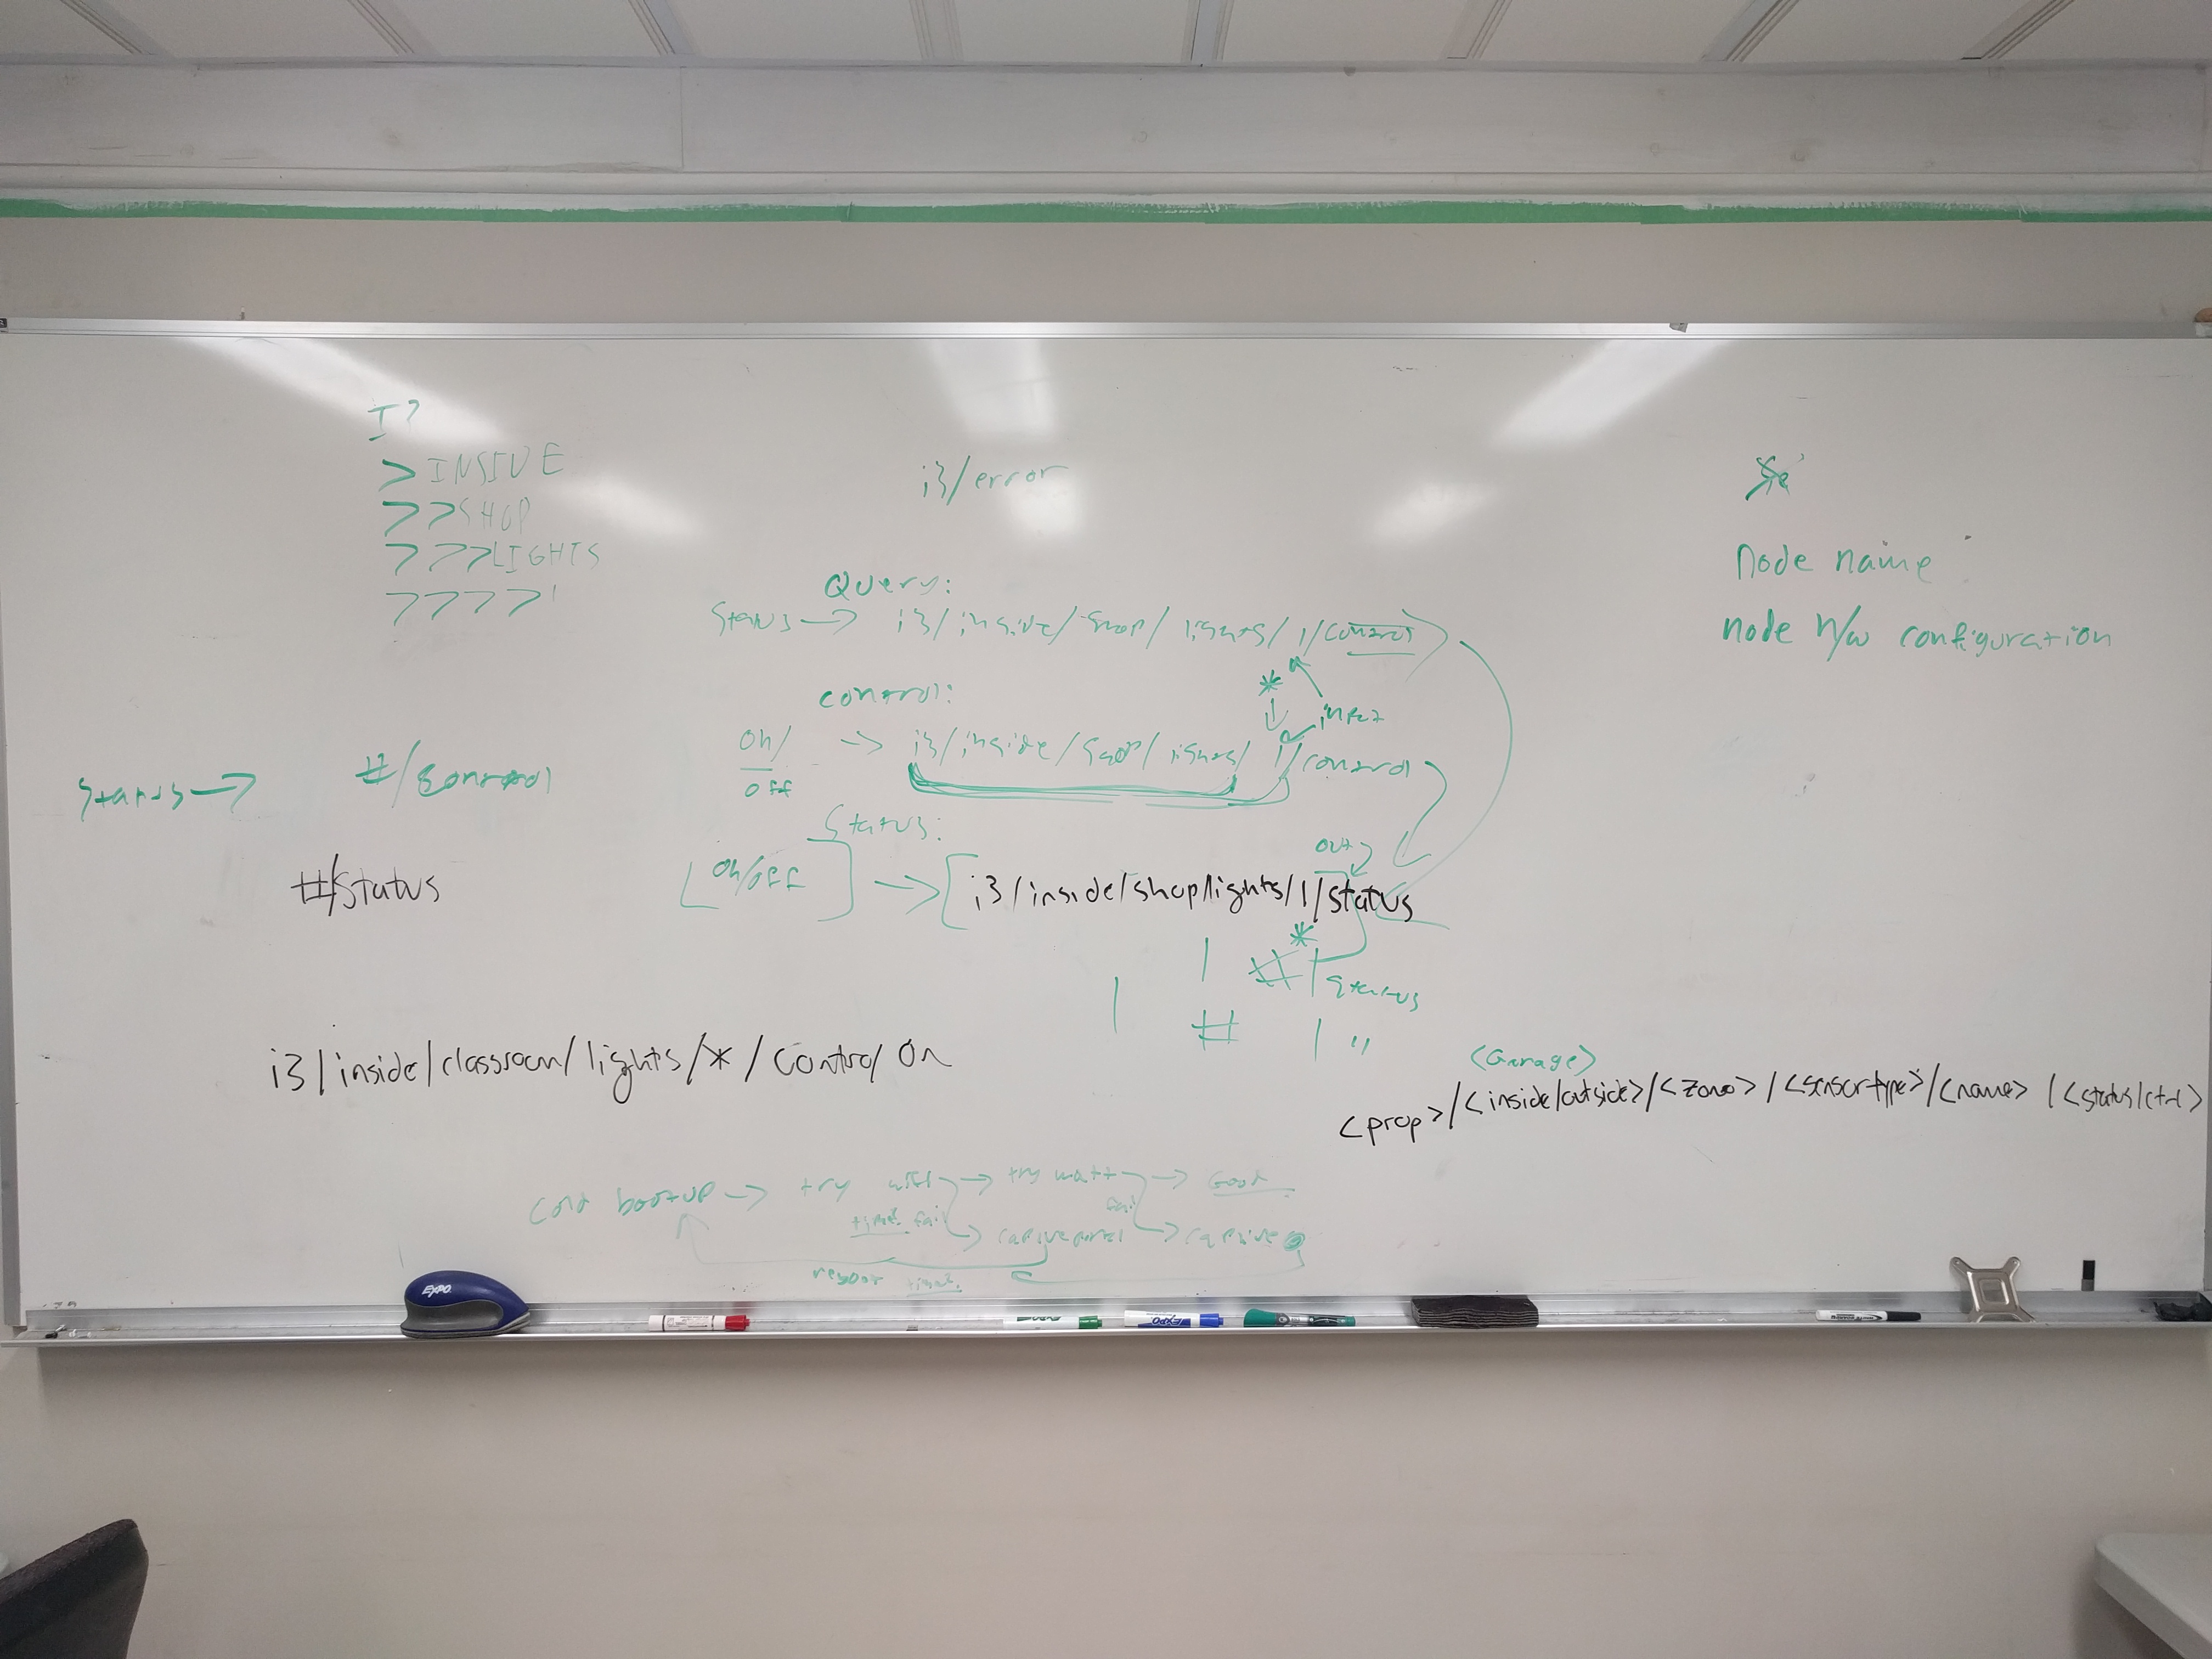 I3
>INSIDE
>>SHOP
>>>LIGHTS
>>>>1
i3/error
Node name:
node n/w configuration
Query:
Status → i3/inside/shop/lights/1/control
*
input
control:
on/off → i3/inside/shop/lights/1/control
status → #/control
Status:
[on/off] → [i3/inside/shop/lights/1/status
out
#/status
*
| # | status
| # | "
i3/inside/classroom/lights/*/control On
<Garage>
<prop>/<inside/outside>/<zone>/<sensortype>/<name>/<status/ctrl>
cold bootup → try wifi → try mqtt → Good
timeout fail → captive portal
fail → captive
reboot timeout
EXPO
EXPO